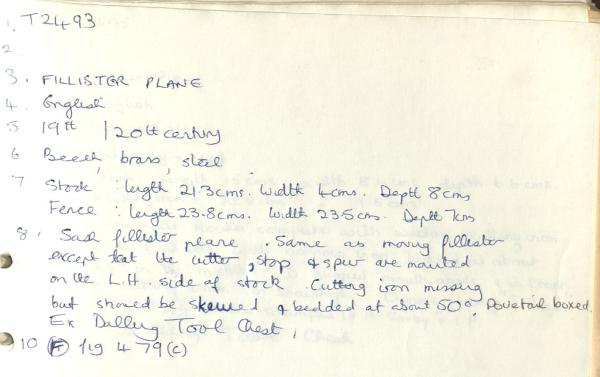 1. T2493
2.
3. FILLISTER PLANE
4. English
5 19th / 20th century
6 Beech, brass, steel
7 Stock : length 21.3cms. Width 4cms. Depth 8cms
Fence : length 23.8cms. Width 23.5cms. Depth 7cms
8. Sash fillister plane. Same as moving fillister
except that the cutter, stop & spur are mounted
on the L.H. side of stock. Cutting iron missing
but should be skewed & bedded at about 50°. Dovetail boxed.
Ex Dalling Tool Chest.
10 fig 4 79(c)